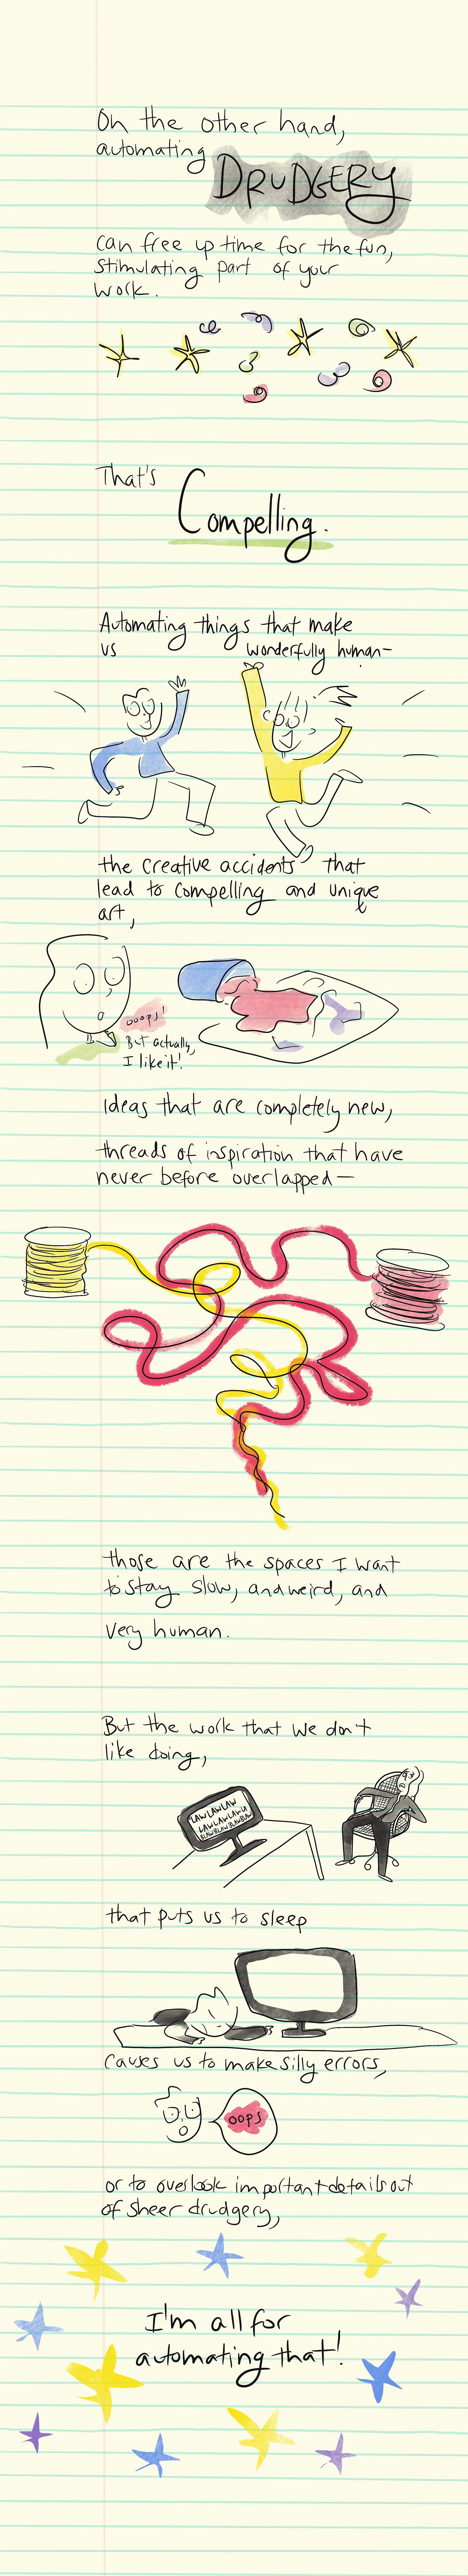 On the other hand,
automating
DRUDGERY
can free up time for the fun,
stimulating part of your
work.
That's
Compelling.
Automating things that make
us wonderfully human—
the creative accidents that
lead to compelling and unique
art,
ooops!
But actually,
I like it!
Ideas that are completely new,
threads of inspiration that have
never before overlapped—
those are the spaces I want
to stay slow, and weird, and
very human.
But the work that we don't
like doing,
LAWLAWLAW
that puts us to sleep
causes us to make silly errors,
oops
or to overlook important details out
of sheer drudgery,
I'm all for
automating that!